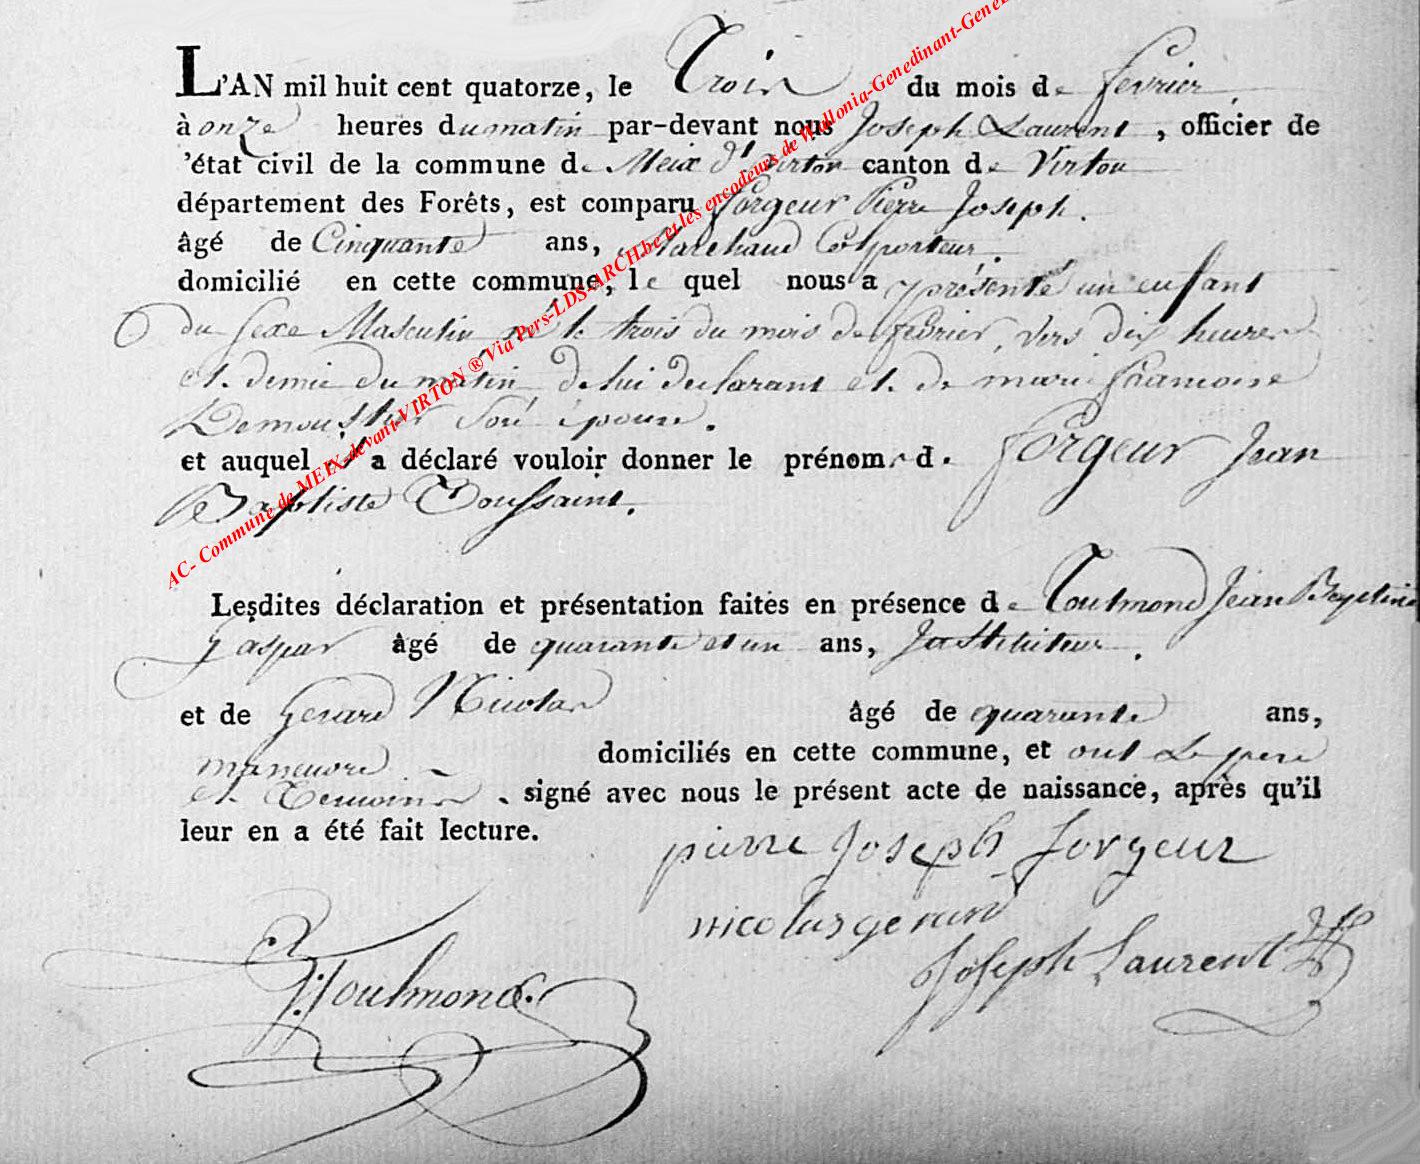 L'AN mil huit cent quatorze, le Trois du mois de fevrier
à onze heures du matin par-devant nous Joseph Laurent, officier de
'état civil de la commune de Meix dt Virton canton de Virton
département des Forêts, est comparu forgeur Pierre Joseph.
âgé de Cinquante ans, Marchand Colporteur.
domicilié en cette commune, le quel nous a présenté un enfant
du sexe Masculin né le trois du mois de fevrier, vers dix heures
et demie du matin de lui declarant et de marie francoise
Demoustier son épouse.
et auquel il a déclaré vouloir donner le prénoms d. forgeur Jean
Baptiste Toussaint.
Lesdites déclaration et présentation faites en présence de Toulmond Jean Baptiste
Gaspar âgé de quarante et un ans, Instituteur.
et de Gerard Nicolas âgé de quarante ans,
maneuvre domiciliés en cette commune, et ont le pere
et Temoins signé avec nous le présent acte de naissance, après qu'il
leur en a été fait lecture.
pierre Joseph forgeur
nicolas gerard
Joseph Laurent
Toulmond.
AC- Commune de MEIX-devant-VIRTON ® Via Pers-LDS-ARCH.be et les encodeurs de Wallonia-Genedinant-Gene